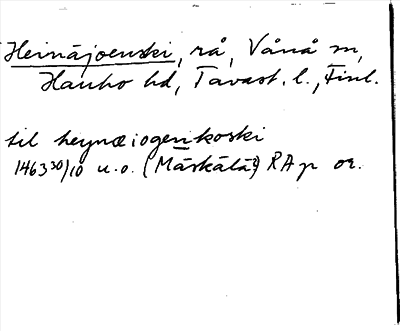 Heinäjoenski, rå, Vånå m,
Hauho hd, Tavast. l., Finl.
til heynæiogenkoski
1463 30/10 u.o. (Mäskälä?) RA p or.